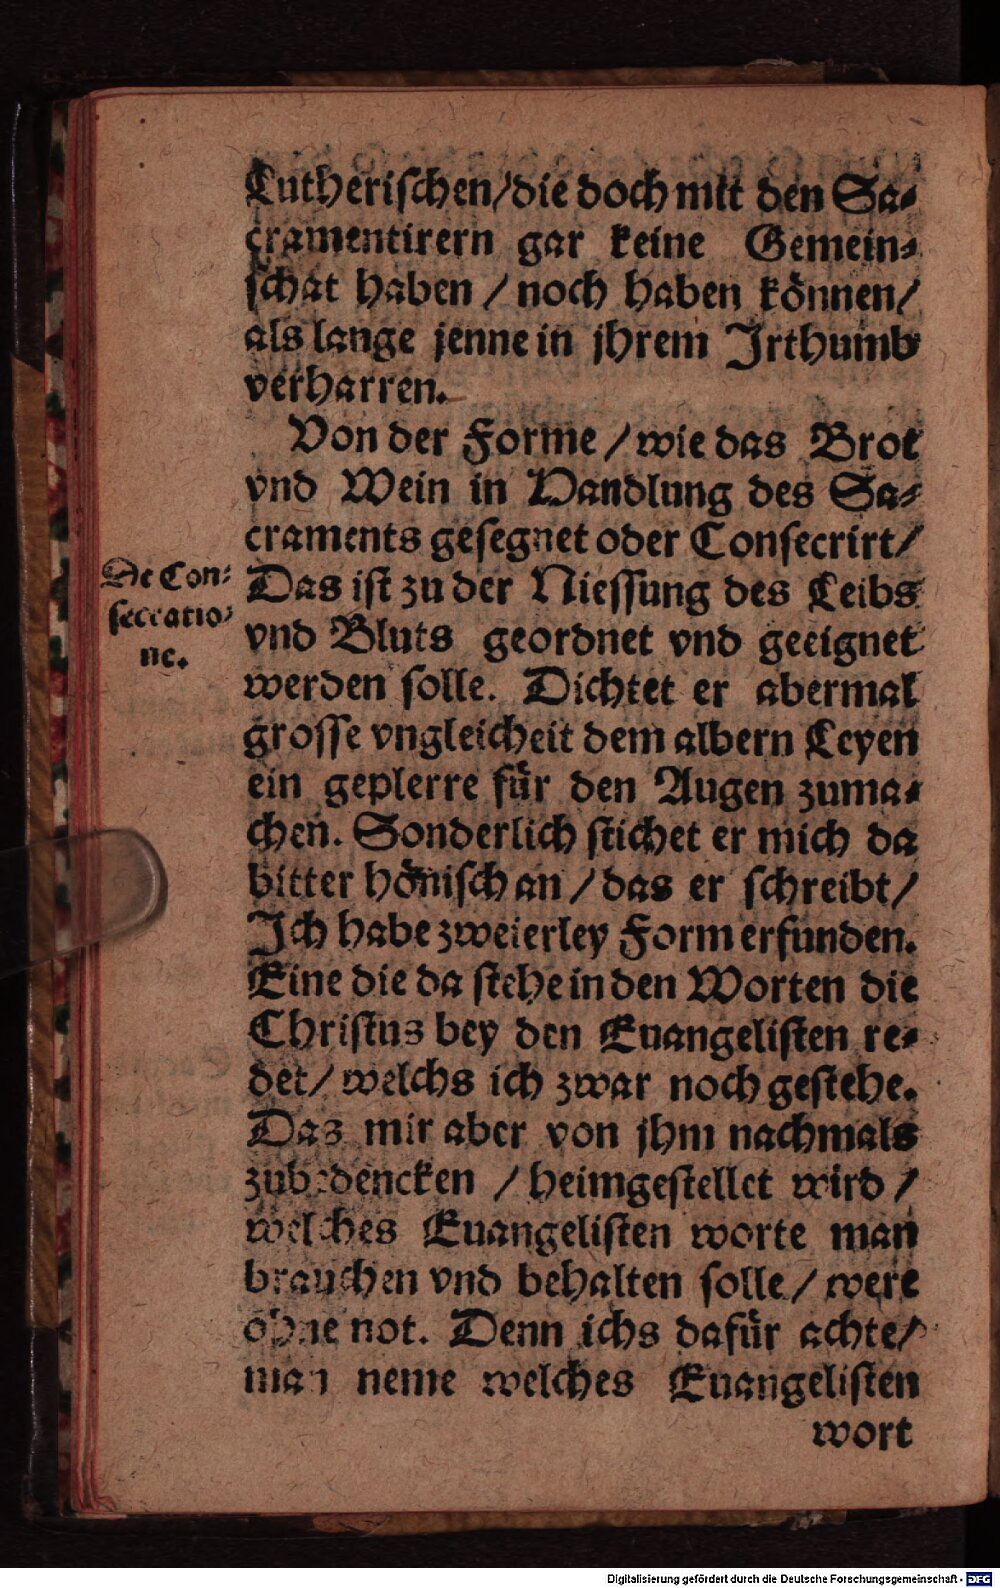 Lutherischen/die doch mit den Sa-
cramentirern gar keine Gemein-
schat haben / noch haben können/
als lange jenne in jhrem Jrthumb
verharren.
Von der Forme / wie das Brot
vnd Wein in Handlung des Sa-
craments gesegnet oder Consecrirt/
De Con-
secratio-
ne.
Das ist zu der Niessung des Leibs
vnd Bluts geordnet vnd geeignet
werden solle. Dichtet er abermal
grosse vngleicheit dem albern Leyen
ein geplerre für den Augen zuma-
chen. Sonderlich stichet er mich da
bitter hönisch an / das er schreibt/
Ich habe zweierley Form erfunden.
Eine die da stehe in den Worten die
Christus bey den Euangelisten re-
det/ welchs ich zwar noch gestehe.
Das mir aber von jhm nachmals
zubedencken / heimgestellet wird /
welches Euangelisten worte man
brauchen vnd behalten solle / were
ohne not. Denn ichs dafür achte/
man neme welches Euangelisten
wort
Digitalisierung gefördert durch die Deutsche Forschungsgemeinschaft - DFG